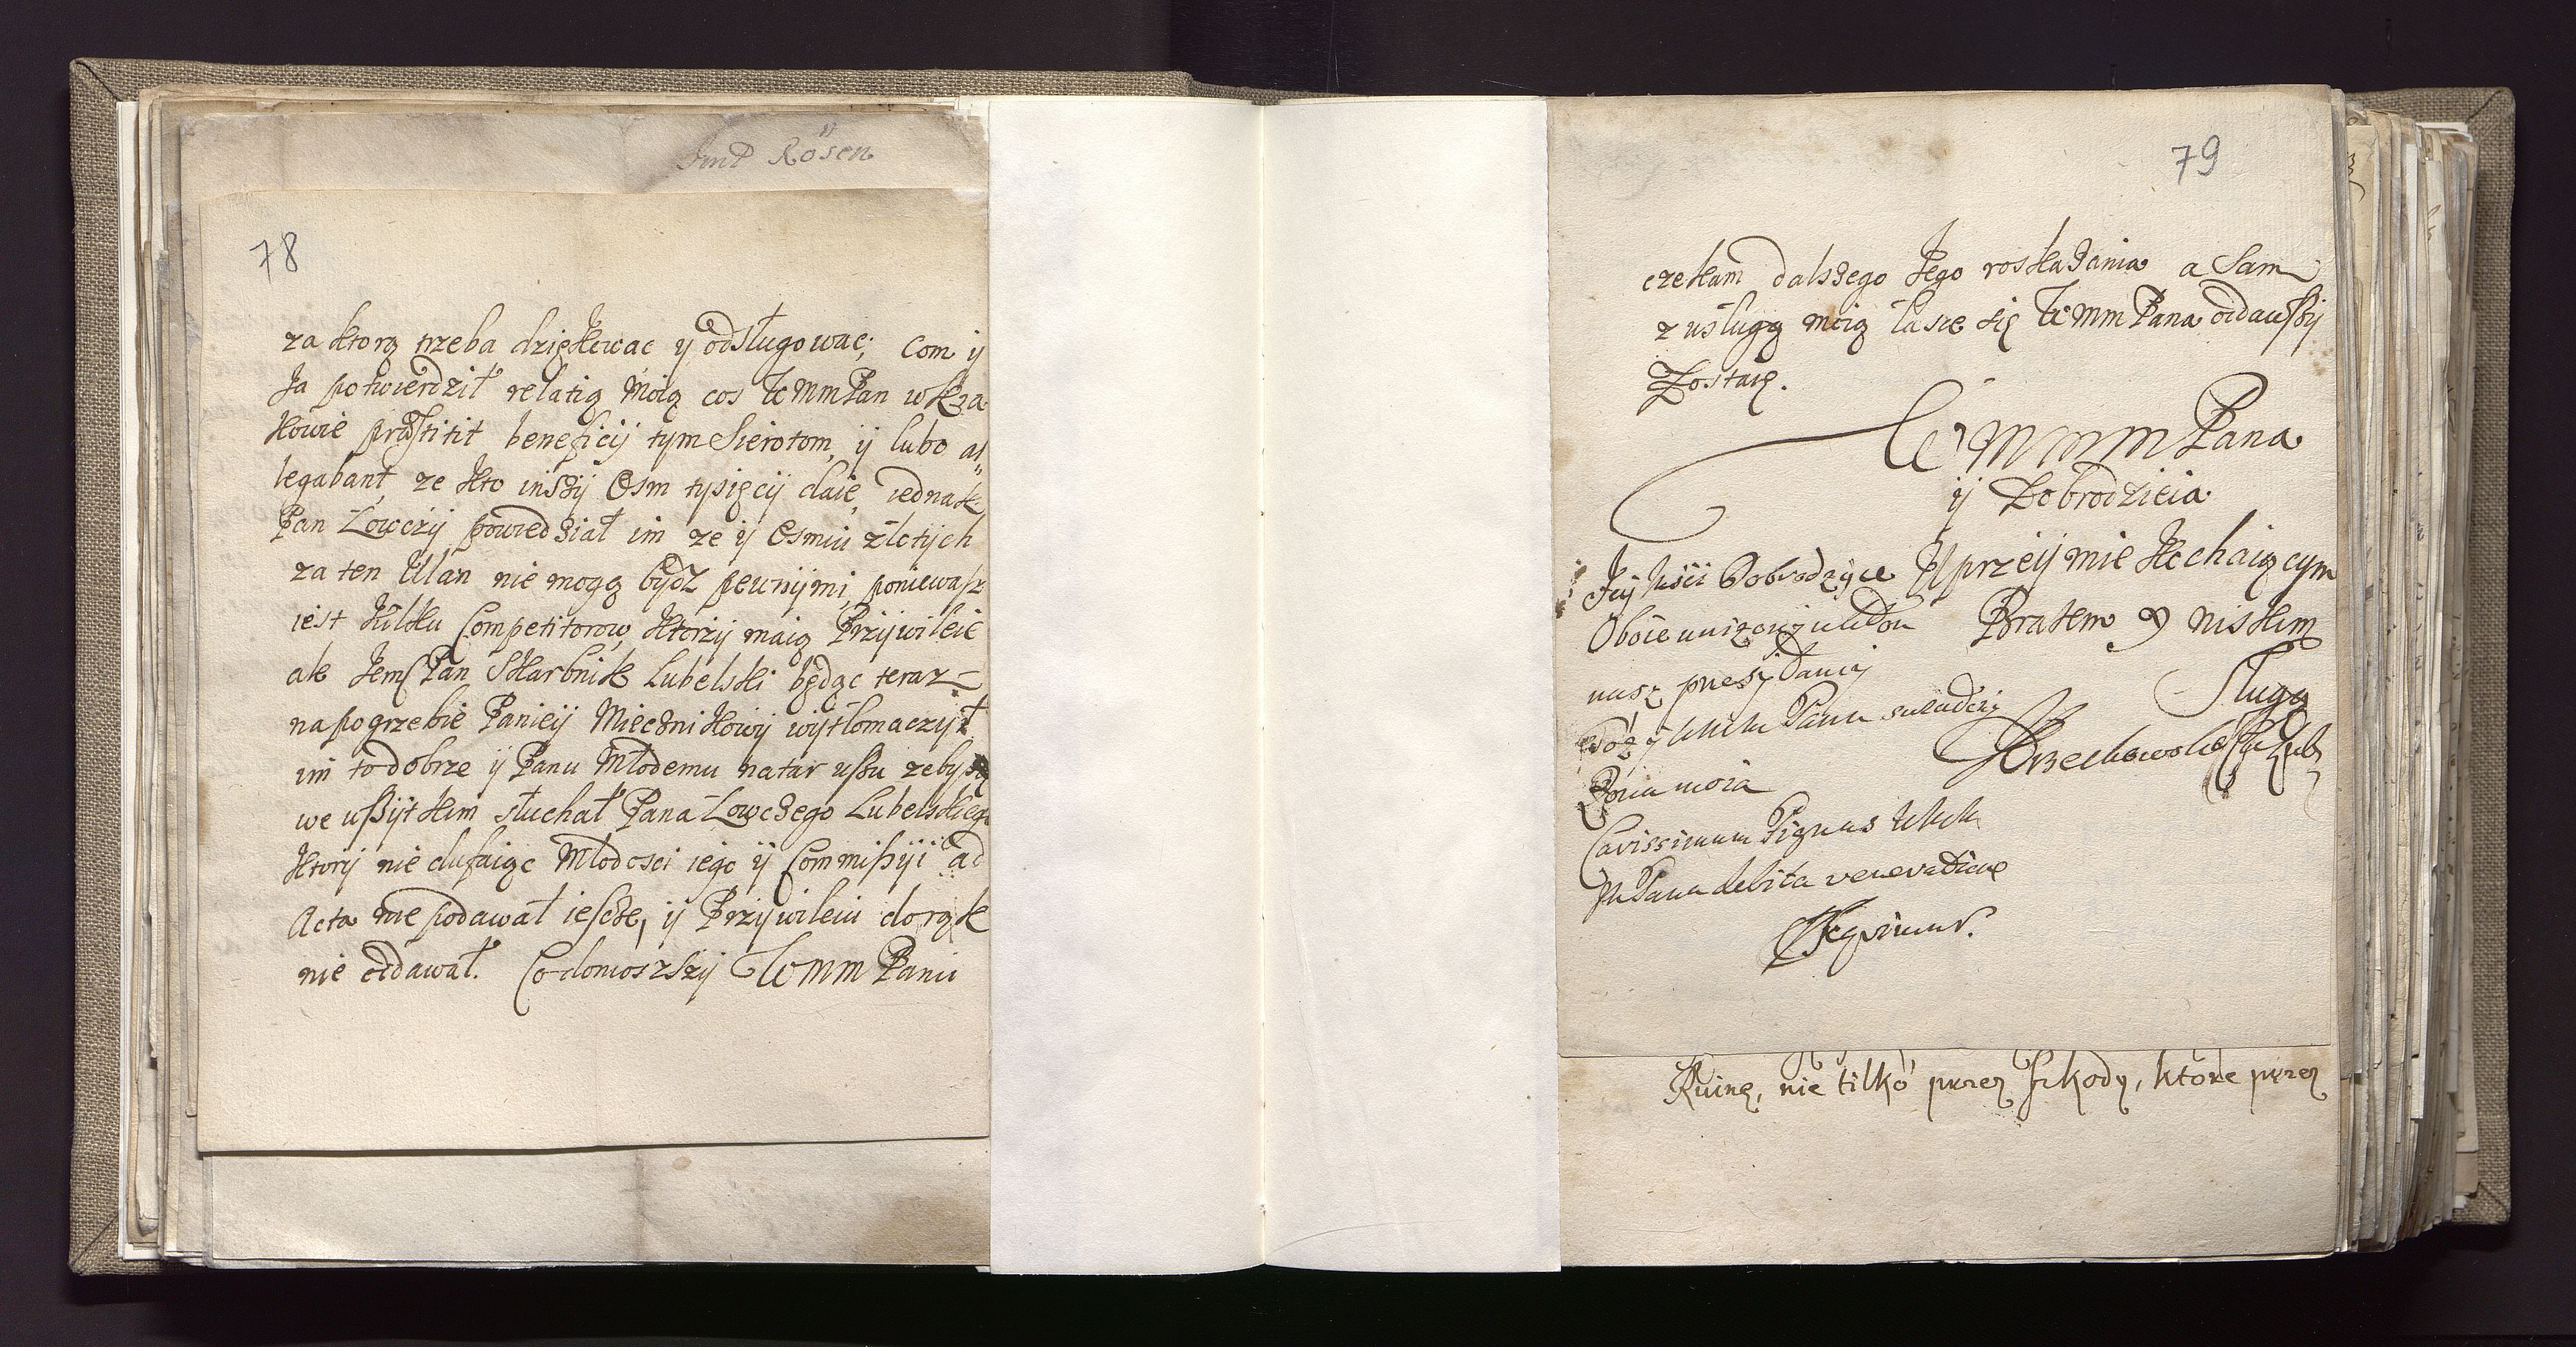 Jmć Rosen
78
za ktorą trzeba dziękowac ÿ odsługowac; com ÿ
Ja potwierdził relatią moią cos WmmPan w Kra
kowie præstitit beneficij tym Sierotom, ÿ lubo al
legabant, ze kto inszÿ Osm tysięcÿ daie, iednak
Pan Łowczÿ powiedział im ze ÿ Osmiu złotÿch
za ten Ulan nie mogą bÿdz pewnÿmi, poniewasz
iest kilku Competitorow, ktorzÿ maią Przÿwileie
ale Jems Pan Skarbnik Lubelski będąc teraz
na pogrzebie Panieÿ Miecznikowÿ wÿtlomaczÿł
im to dobrze ÿ Panu Młodemu natar ussu zeby
we wszÿtkim słuchał Pana Łowczego Lubelskiego
ktorÿ nie dufaiąc Młodosci iego ÿ Commissÿi ad
Acta nie podawał iescze, ÿ Przÿwileiu do rąk
nie oddawał. Co doniosszÿ WmmPanu
79
czekam dalszego Jego roskazania a Sam
z usługą moią łasce się WmmPana oddawszÿ
Zostaię.
WmmmPana
ÿ Dobrodzieia
Jeÿ Mści Dobrodzÿce
Uprzeÿmie kochaiącym
Bratem y niskim
Sługą
Oboie unizony ukłon
nasz
Pana
Zona moia
Carissimum Pignus
Pana debita veneratione
Ruinę, nie tilko przez szkody, ktore przez